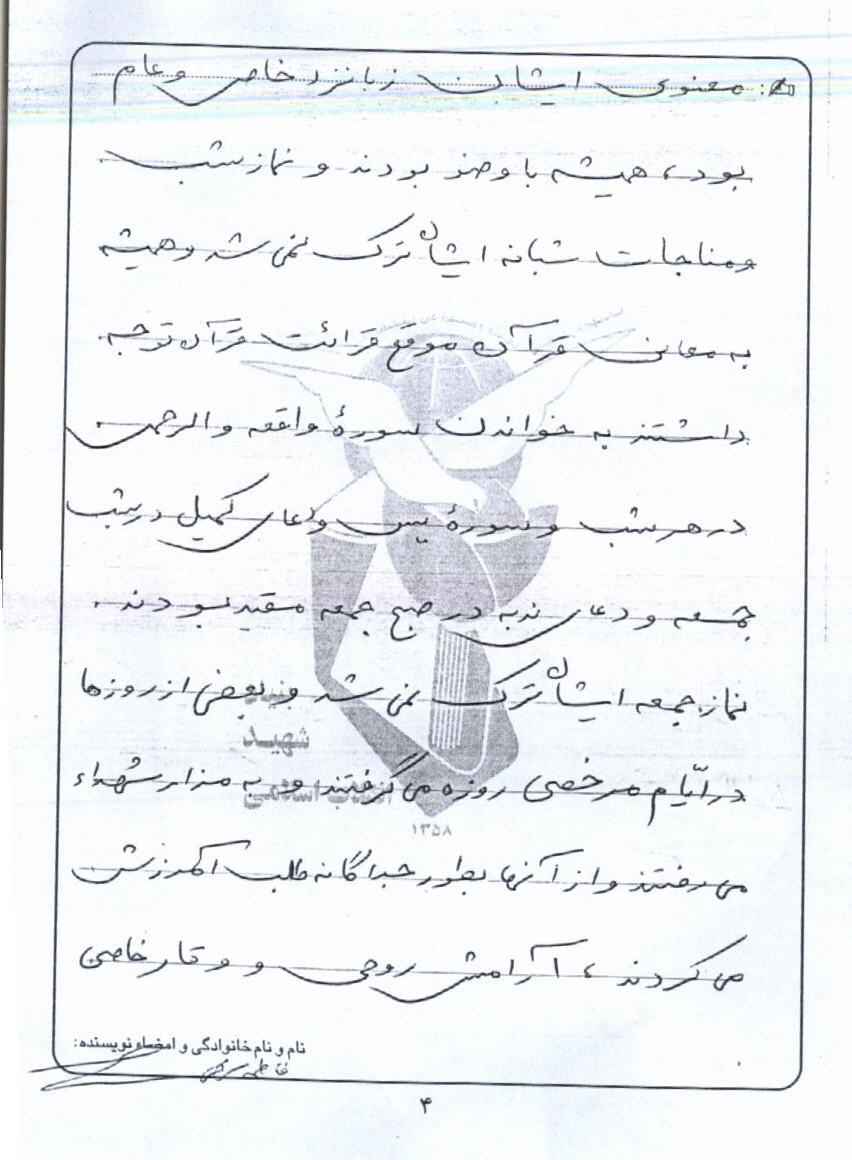 معنوی ایشان زبانزد خاص و عام
بود، همیشه با وضو بودند و نماز شب
و مناجات شبانه ایشان ترک نمی شد و همیشه
به معانی قرآن موقع قرائت قرآن توجه
داشتند به خواندن سورۀ واقعه والرحمن
در هر شب و سورۀ یس و دعای کمیل در شب
جمعه و دعای ندبه در صبح جمعه مقید بودند.
نماز جمعه ایشان ترک نمی شد و بعضی از روزها
در ایّام مرخصی روزه می گرفتند و به مزار شهداء
می رفتند و از آنها بطور جداگانه طلب آمرزش
می کردند، آرامش روحی و وقار خاصی
شهید
۱۳۵۸
نام و نام خانوادگی و امضاء نویسنده:
فاطمه
۴